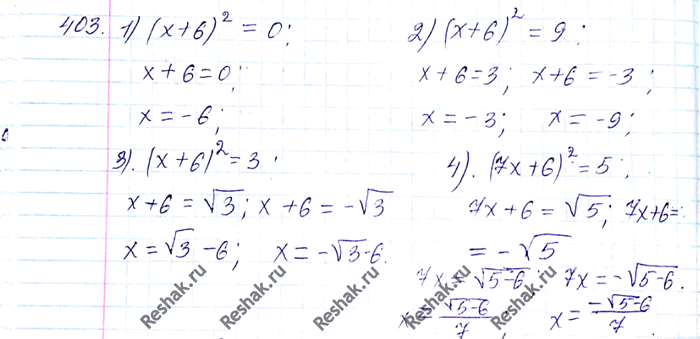 403. 1) (x+6)² = 0;
x+6=0;
x=-6;
2) (x+6)² = 9;
x+6=3; x+6=-3;
x=-3; x=-9;
3). (x+6)²=3;
x+6=√3; x+6=-√3
x=√3-6; x=-√3-6.
4). (7x+6)²=5;
7x+6=√5; 7x+6=
=-√5
7x=√5-6 7x=-√5-6.
x=(√5-6)/7; x=(-√5-6)/7
Reshak.ru
Reshak.ru
Reshak.ru
Reshak.ru